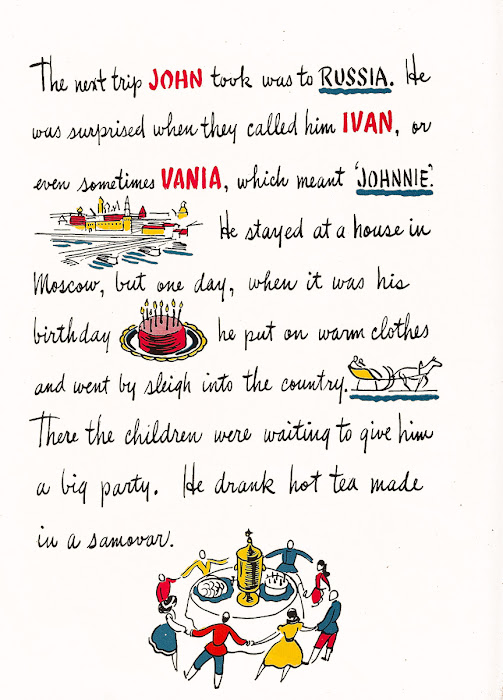 The next trip JOHN took was to RUSSIA. He
was surprised when they called him IVAN, or
even sometimes VANIA, which meant 'JOHNNIE'.
He stayed at a house in
Moscow, but one day, when it was his
birthday he put on warm clothes
and went by sleigh into the country.
There the children were waiting to give him
a big party. He drank hot tea made
in a samovar.